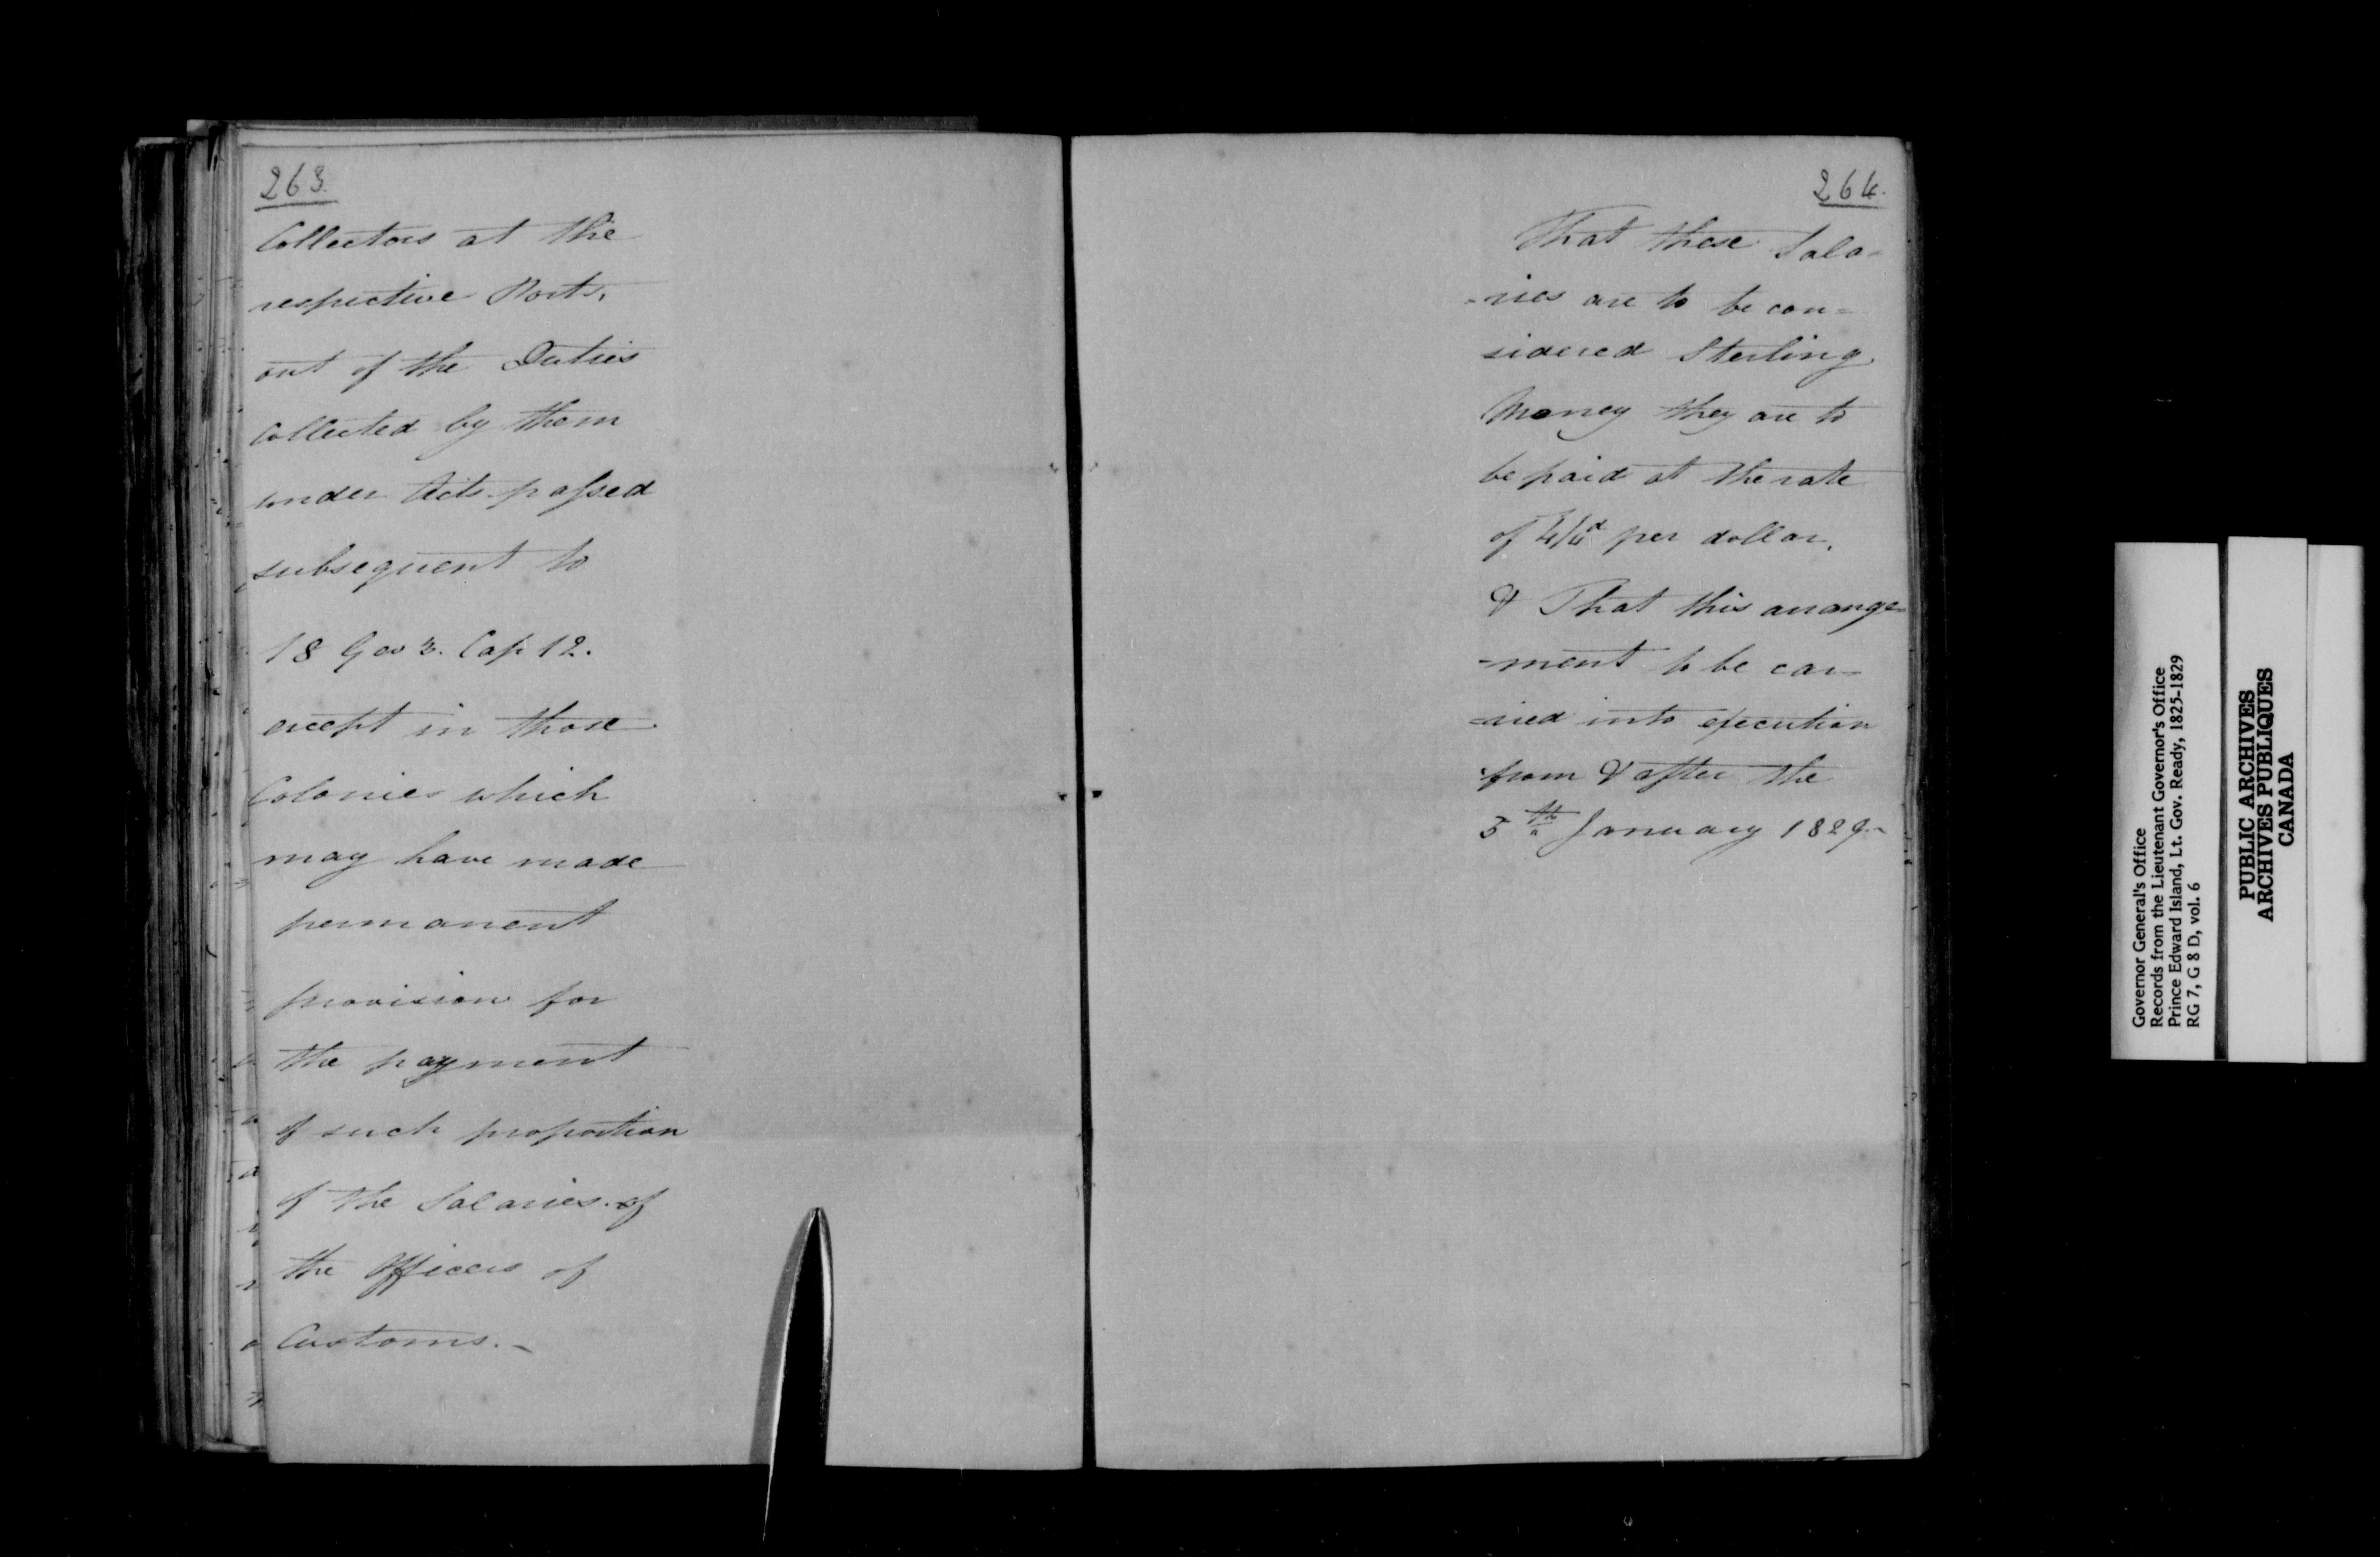 263.
Collectors at the
respective Ports,
out of the Duties
Collected by them
under Acts passed
subsequent to
18 Geo 3. Cap 12.
except in those
Colonies which
may have made
permanent
provision for
the payment
of such proportion
of the Salaries of
the Officers of
Customs.-
264.
That these Sala-
-ries are to be con=
sidered Sterling
Money they are to
be paid at the rate
of 4/4d per dollar.
& That this arrange
-ment to be car-
=ried into execution
from & after the
5th January 1829-
Governor General's Office
Records from the Lieutenant Governor's Office
Prince Edward Island, Lt. Gov. Ready, 1825-1829
RG 7, G 8 D, vol. 6
PUBLIC ARCHIVES
ARCHIVES PUBLIQUES
CANADA